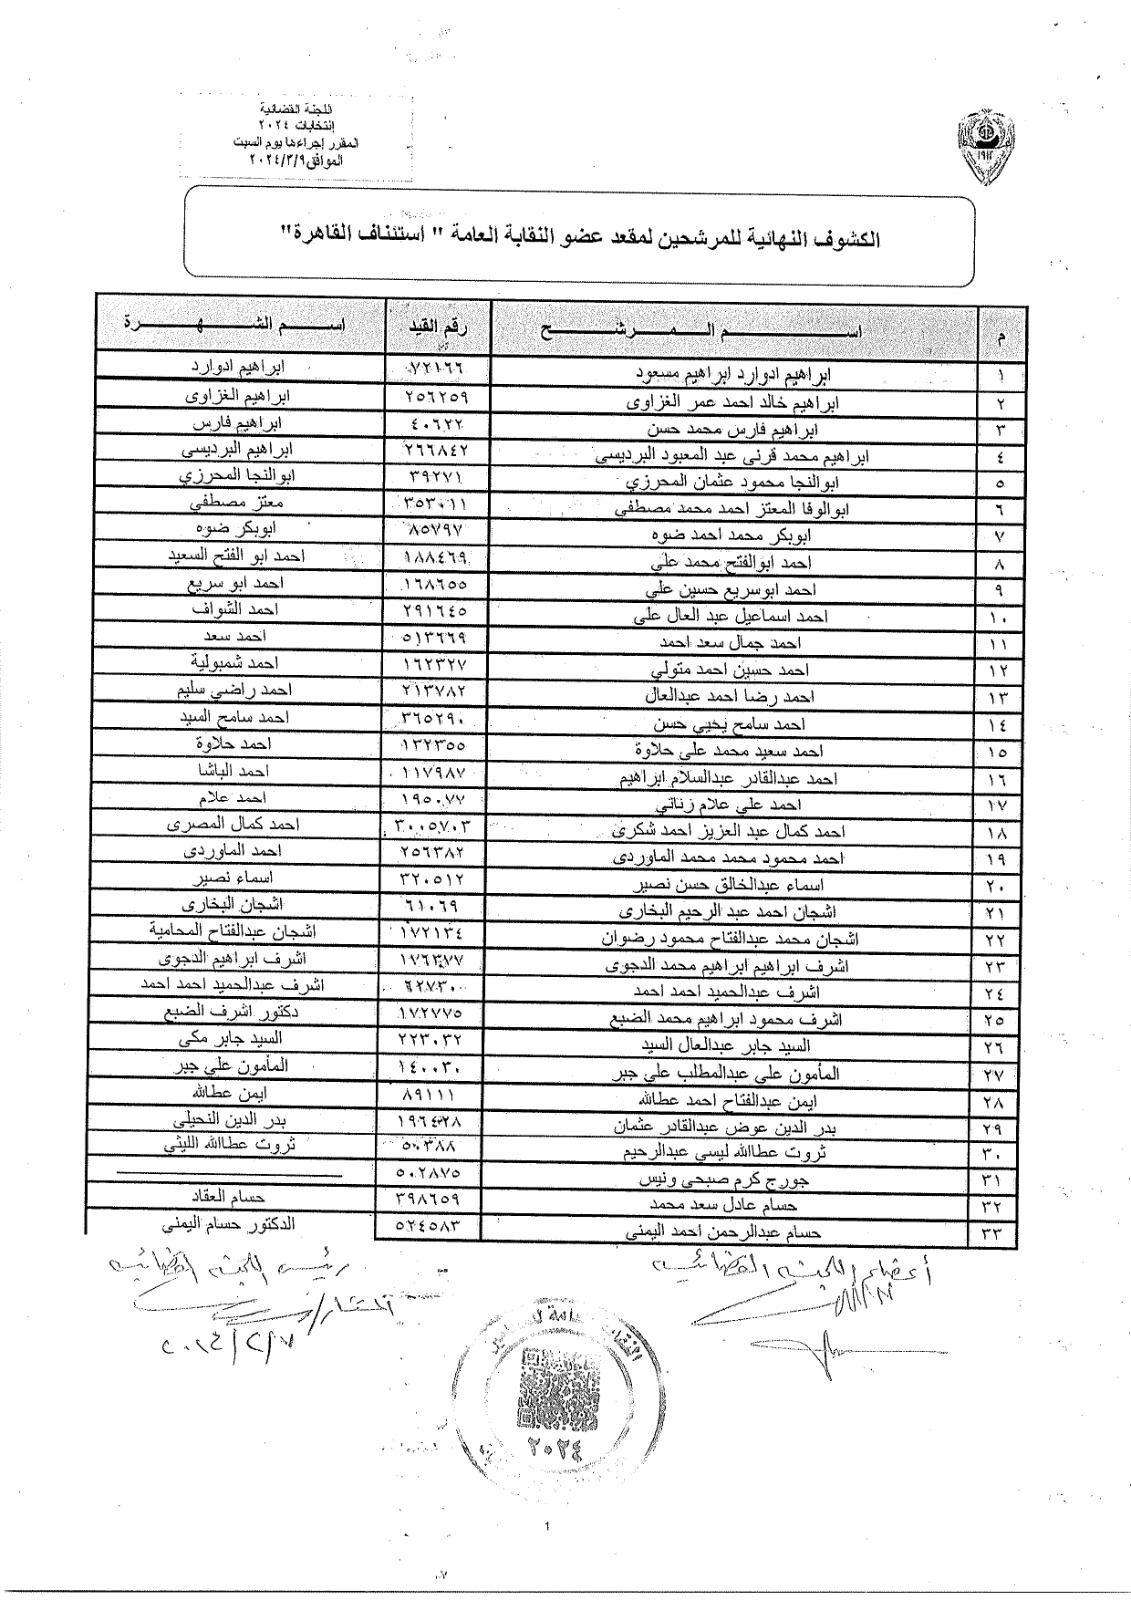 اللجنة القضائية
إنتخابات ٢٠٢٤
المقرر إجراءها يوم السبت
الموافق ٢٠٢٤/٣/٩
١٩١٢
الكشوف النهائية للمرشحين لمقعد عضو النقابة العامة " استئناف القاهرة"
م اسم المرشح رقم القيد اسم الشهرة
١ ابراهيم ادوارد ابراهيم مسعود ٧٢١٦٦ ابراهيم ادوارد
٢ ابراهيم خالد احمد عمر الغزاوى ٢٥٦٢٥٩ ابراهيم الغزاوى
٣ ابراهيم فارس محمد حسن ٤٠٦٢٢ ابراهيم فارس
٤ ابراهيم محمد قرنى عبد المعبود البرديسى ٢٦٦٨٤٢ ابراهيم البرديسى
٥ ابوالنجا محمود عثمان المحرزي ٣٩٢٧١ ابوالنجا المحرزي
٦ ابوالوفا المعتز احمد محمد مصطفي ٣٥٣٠١١ معتز مصطفي
٧ ابوبكر محمد احمد ضوه ٨٥٧٩٧ ابوبكر ضوه
٨ احمد ابوالفتح محمد علي ١٨٨٤٦٩ احمد ابو الفتح السعيد
٩ احمد ابوسريع حسين علي ١٦٨٦٥٥ احمد ابو سريع
١٠ احمد اسماعيل عبد العال على ٢٩١٦٤٥ احمد الشواف
١١ احمد جمال سعد احمد ٥١٣٦٦٩ احمد سعد
١٢ احمد حسين احمد متولي ١٦٢٣٢٧ احمد شمبولية
١٣ احمد رضا احمد عبدالعال ٢١٣٧٨٢ احمد راضي سليم
١٤ احمد سامح يحيي حسن ٣٦٥٢٩٠ احمد سامح السيد
١٥ احمد سعيد محمد علي حلاوة ١٣٢٣٥٥ احمد حلاوة
١٦ احمد عبدالقادر عبدالسلام ابراهيم ١١٧٩٨٧ احمد الباشا
١٧ احمد علي علام زناتي ١٩٥٠٧٧ احمد علام
١٨ احمد كمال عبد العزيز احمد شكرى ٣٠٠٥٧٠٣ احمد كمال المصرى
١٩ احمد محمود محمد محمد الماوردى ٢٥٦٣٨٢ احمد الماوردى
٢٠ اسماء عبدالخالق حسن نصير ٣٢٠٥١٢ اسماء نصير
٢١ اشجان احمد عبد الرحيم البخارى ٦١٠٦٩ اشجان البخارى
٢٢ اشجان محمد عبدالفتاح محمود رضوان ١٧٢١٣٤ اشجان عبدالفتاح المحامية
٢٣ اشرف ابراهيم ابراهيم محمد الدجوى ١٧٦٣٧٧ اشرف ابراهيم الدجوى
٢٤ اشرف عبدالحميد احمد احمد ٦٢٧٣٠ اشرف عبدالحميد احمد احمد
٢٥ اشرف محمود ابراهيم محمد الضبع ١٧٢٧٧٥ دكتور اشرف الضبع
٢٦ السيد جابر عبدالعال السيد ٢٢٣٠٣٢ السيد جابر مكى
٢٧ المأمون علي عبدالمطلب علي جبر ١٤٠٠٣٠ المأمون علي جبر
٢٨ ايمن عبدالفتاح احمد عطالله ٨٩١١١ ايمن عطالله
٢٩ بدر الدين عوض عبدالقادر عثمان ١٩٦٤٢٨ بدر الدين النحيلي
٣٠ ثروت عطاالله ليسي عبدالرحيم ٥٠٣٨٨ ثروت عطاالله الليثي
٣١ جورج كرم صبحى ونيس ٥٠٢٨٧٥
٣٢ حسام عادل سعد محمد ٣٩٨٦٥٩ حسام العقاد
٣٣ حسام عبدالرحمن احمد اليمني ٥٢٤٥٨٣ الدكتور حسام اليمني
أعضاء اللجنة القضائية
رئيس اللجنة القضائية
المستشار/
٢٠٢٤/٢/٧
النقابة العامة للمحامين
٢٠٢٤
1